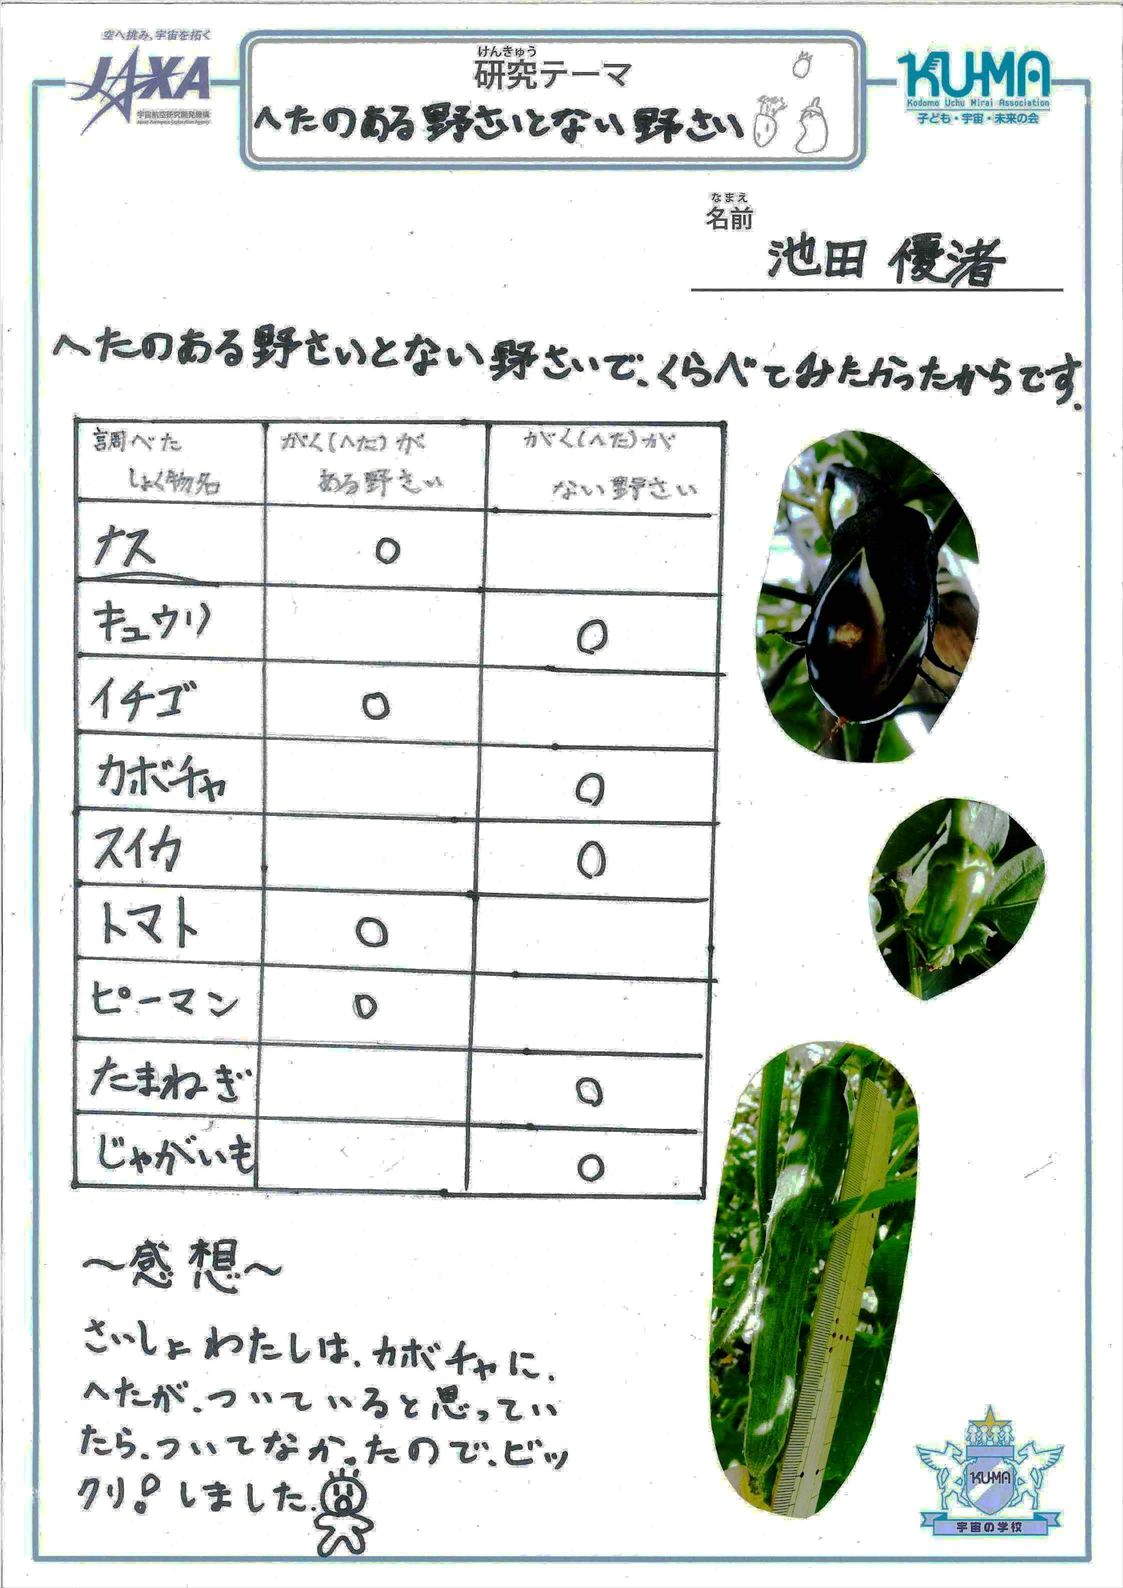 空へ挑み、宇宙を拓く
JAXA
宇宙航空研究開発機構
Japan Aerospace Exploration Agency
けんきゅう
研究テーマ
へたのある野さいとない野さい
KU-MA
Kodomo Uchu Mirai Association
子ども・宇宙・未来の会
なまえ
名前
池田 優渚
へたのある野さいとない野さいで、くらべてみたかったからです。
調べた しょく物名 がく(へた)が ある野さい がく(へた)が ない野さい
ナス ○
キュウリ ○
イチゴ ○
カボチャ ○
スイカ ○
トマト ○
ピーマン ○
たまねぎ ○
じゃがいも ○
〜感想〜
さいしょわたしは、カボチャに、
へたが、ついていると思ってい
たら、ついてなかったので、ビッ
クリ!しました。
KU-MA
宇宙の学校